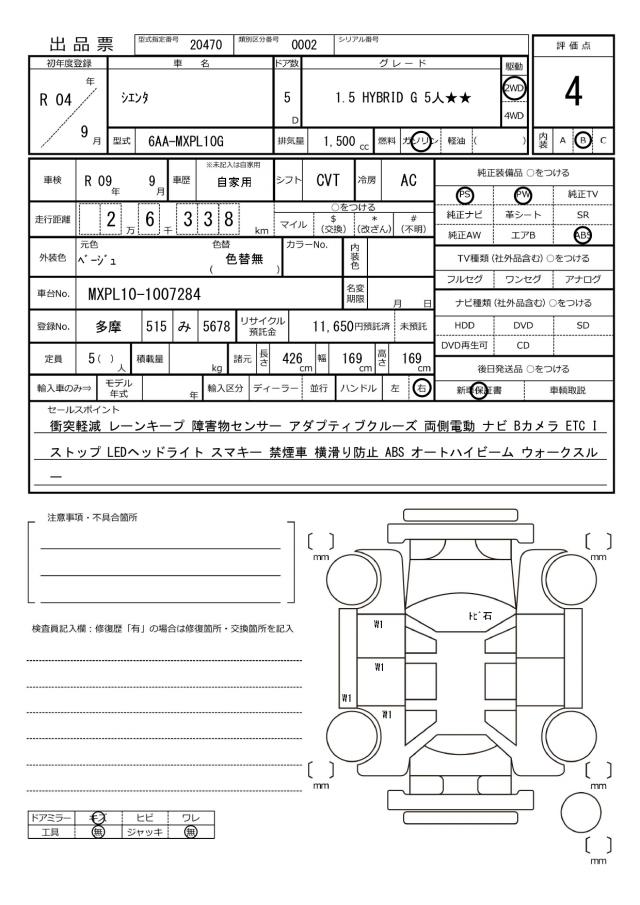 出品票
型式指定番号 20470 類別区分番号 0002 シリアル番号
評価点
4
内装 A B C
初年度登録 車名 ドア数 グレード 駆動
R 04 年 9 月
シエンタ
5 D
1.5 HYBRID G 5人★★
2WD
4WD
型式 6AA-MXPL10G 排気量 1,500 cc 燃料 ガソリン 軽油 ( )
車検 R 09 年 9 月 車歴 ※未記入は自家用 自家用 シフト CVT 冷房 AC
走行距離 2 万 6 千 3 3 8 km
○をつける
マイル $ (交換) * (改ざん) # (不明)
外装色 元色 ベージュ 色替 ( 色替無 ) カラーNo. 内装色
車台No. MXPL10-1007284 名変期限 月 日
登録No. 多摩 515 み 5678 リサイクル預託金 11,650円預託済 未預託
定員 5 ( ) 人 積載量 kg 諸元 長さ 426 cm 幅 169 cm 高さ 169 cm
輸入車のみ⇒ モデル年式 年 輸入区分 ディーラー 並行 ハンドル 左 右
純正装備品 ○をつける
PS PW 純正TV
純正ナビ 革シート SR
純正AW エアB ABS
TV種類(社外品含む)○をつける
フルセグ ワンセグ アナログ
ナビ種類(社外品含む)○をつける
HDD DVD SD
DVD再生可 CD
後日発送品 ○をつける
新車保証書 車輌取説
セールスポイント
衝突軽減 レーンキープ 障害物センサー アダプティブクルーズ 両側電動 ナビ Bカメラ ETC I
ストップ LEDヘッドライト スマキー 禁煙車 横滑り防止 ABS オートハイビーム ウォークスル
ー
注意事項・不具合箇所
検査員記入欄：修復歴「有」の場合は修復箇所・交換箇所を記入
ドアミラー キズ ヒビ ワレ
工具 無 ジャッキ 無
[ ] mm
[ ] mm
トビ石
W1
W1
W1
W1
[ ] mm
[ ] mm
[ ] mm